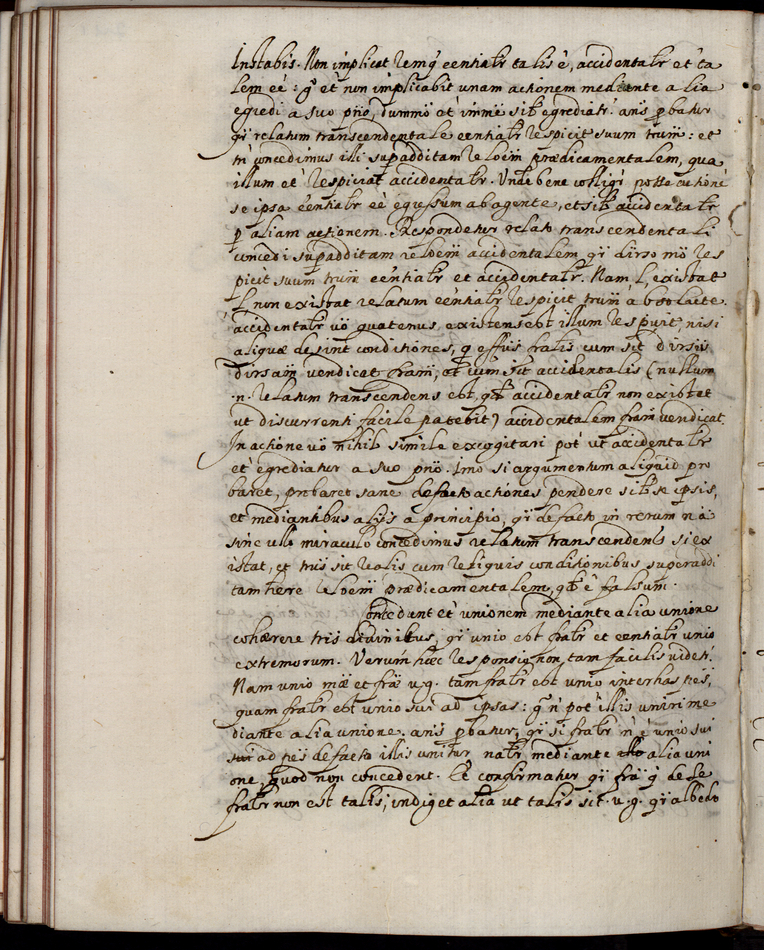 Instabis. Non implicat rem q̃ eentialr̃ talis ẽ, accidentalr̃ et ta
lem eẽ: g̃ et non implicabit unam actionem mediante alia
egredi a suo prĩo,
qr̃ relatum transcendentale eentialr̃ respicit suum trũm: et
tñ concedimus illi supadditam reloem prædicamentalem, qua
illum eẽ respiciat accidentalr̃. Unde bene colligi posse actionẽ
se ipsa eentialr̃ eẽ egressum ab agente, et sibi accidentalr̃
p aliam actionem. Respondetur relato transcendentali
concedi supadditam reloem accidentalem qr̃ diverso mõ res
picit suum trũm eentialr̃ et accidentalr̃. Nam l, existat
l, non existat relatum eentialr̃ respicit trũm absolute.
accidentalr̃ võ quatenus existens est illum respicit, nisi
aliquæ desint conditiones, effus fr̃alis cum sit dirsus
dirsam vendicat fr̃am, et cum sit accidentalis (nullum
.n. relatum transcendens est, qd̃ accidentalr̃ non existet
ut discurrenti facile patebit) accidentalem fr̃am vendicat.
In actione võ nihil simile excogitari pot ut accidentalr̃
et egrediatur a suo prĩo. Imo si argumentum aliquid pro
baret, probaret sane de facto actiones pendere sibi se ipsis,
et mediantibus aliis a principio, qr̃ de facto in rerum nã
sine ullo miraculo concedimus relatum transcendens si ex
istat, et trũs sit realis cum reliquis conditionibus superaddi
tam here reloem prædicamentalem, qd̃ ẽ falsum.
Concedunt et unionem mediante alia unione
cohærere tr̃is divinitus, qr̃ unio est fr̃alr̃ et eentialr̃ unio
extremorum. Verum hæc responsio non tam facilis videt.
Nam unio mæ et fræ v.g. tam fr̃alr̃ est unio inter has res,
quam fr̃alr̃ est unio sui ad ipsas: g̃ ñ pot illis uniri me
diante alia unione. ans pbatur, qr̃ si fr̃alr̃ ñ ẽ unio sui
ad res de facto illis unitur nãlr̃ mediante alia uni
one, quod non concedent. Et confirmatur qr̃ fr̃a q̃ de se
fr̃alr̃ non est talis, indiget alia ut talis sit. v.g. qr̃ albedo